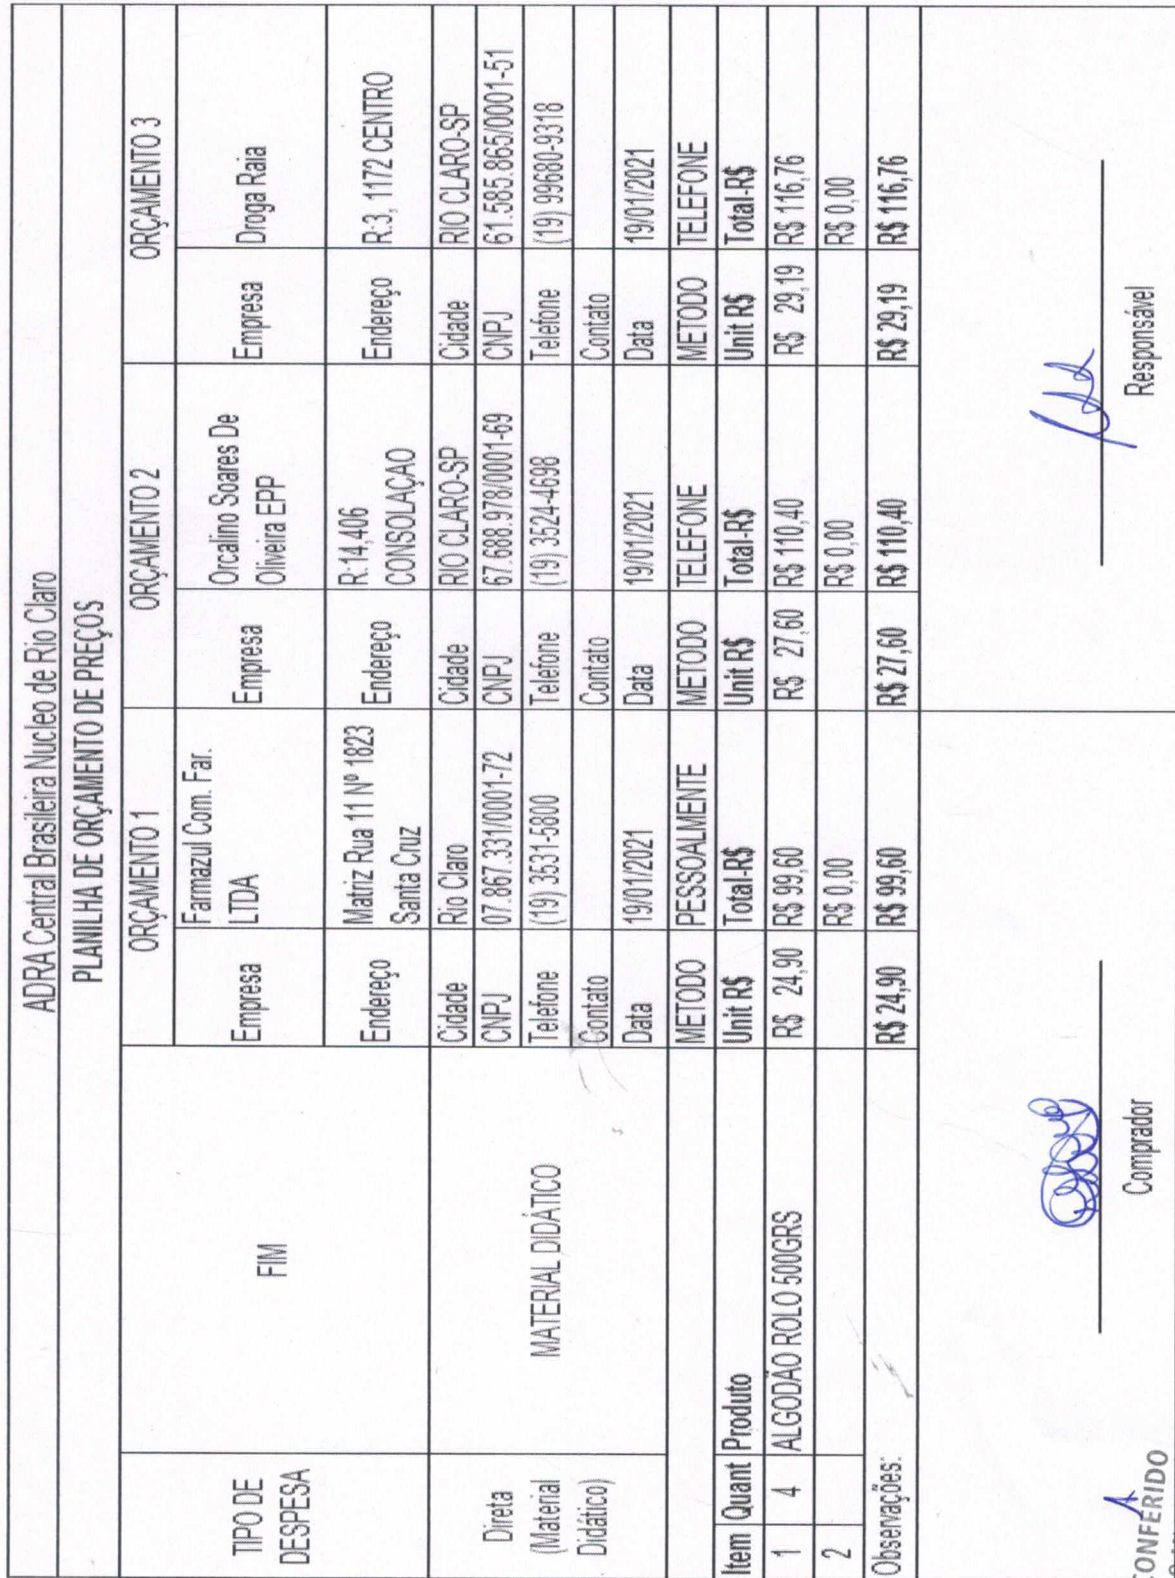 ADRA Central Brasileira Nucleo de Rio Claro
PLANILHA DE ORÇAMENTO DE PREÇOS
TIPO DE DESPESA FIM ORÇAMENTO 1 ORÇAMENTO 2 ORÇAMENTO 3
Empresa Farmazul Com. Far. LTDA Empresa Orcalino Soares De Oliveira EPP Empresa Droga Raia
Endereço Matriz Rua 11 Nº 1823 Santa Cruz Endereço R.14,406 CONSOLAÇAO Endereço R:3, 1172 CENTRO
Direta (Material Didático) MATERIAL DIDÁTICO Cidade Rio Claro Cidade RIO CLARO-SP Cidade RIO CLARO-SP
CNPJ 07.867.331/0001-72 CNPJ 67.688.978/0001-69 CNPJ 61.585.865/0001-51
Telefone (19) 3531-5800 Telefone (19) 3524-4698 Telefone (19) 99680-9318
Contato Contato Contato
Data 19/01/2021 Data 19/01/2021 Data 19/01/2021
METODO PESSOALMENTE METODO TELEFONE METODO TELEFONE
Item Quant Produto Unit R$ Total-R$ Unit R$ Total-R$ Unit R$ Total-R$
1 4 ALGODÃO ROLO 500GRS R$ 24,90 R$ 99,60 R$ 27,60 R$ 110,40 R$ 29,19 R$ 116,76
2 R$ 0,00 R$ 0,00 R$ 0,00
Observações: R$ 24,90 R$ 99,60 R$ 27,60 R$ 110,40 R$ 29,19 R$ 116,76
Comprador Responsável
CONFERIDO